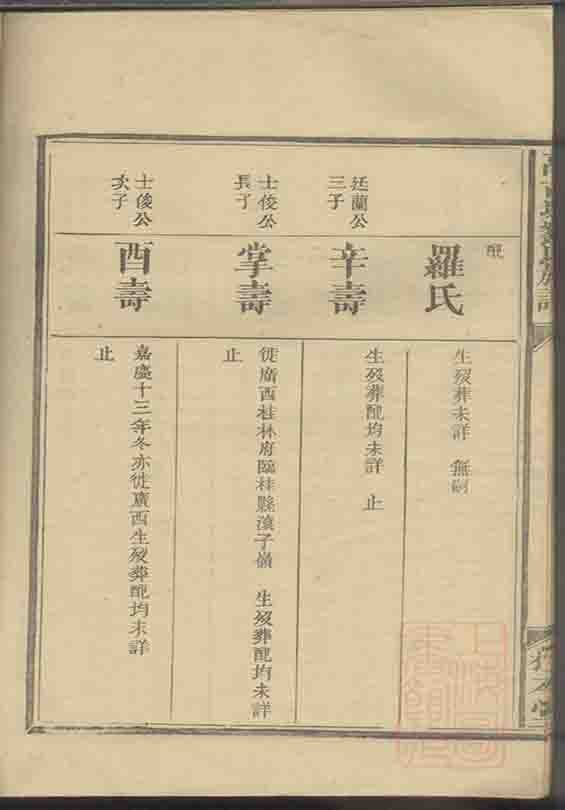 配
羅氏
生歿葬未詳 無嗣
廷蘭公
三子
辛壽
生歿葬配均未詳 止
士俊公
長子
掌壽
徙廣西桂林府臨桂縣濵子嶺 生歿葬配均未詳
止
士俊公
次子
酉壽
嘉慶十三年冬亦徙廣西生歿葬配均未詳
止